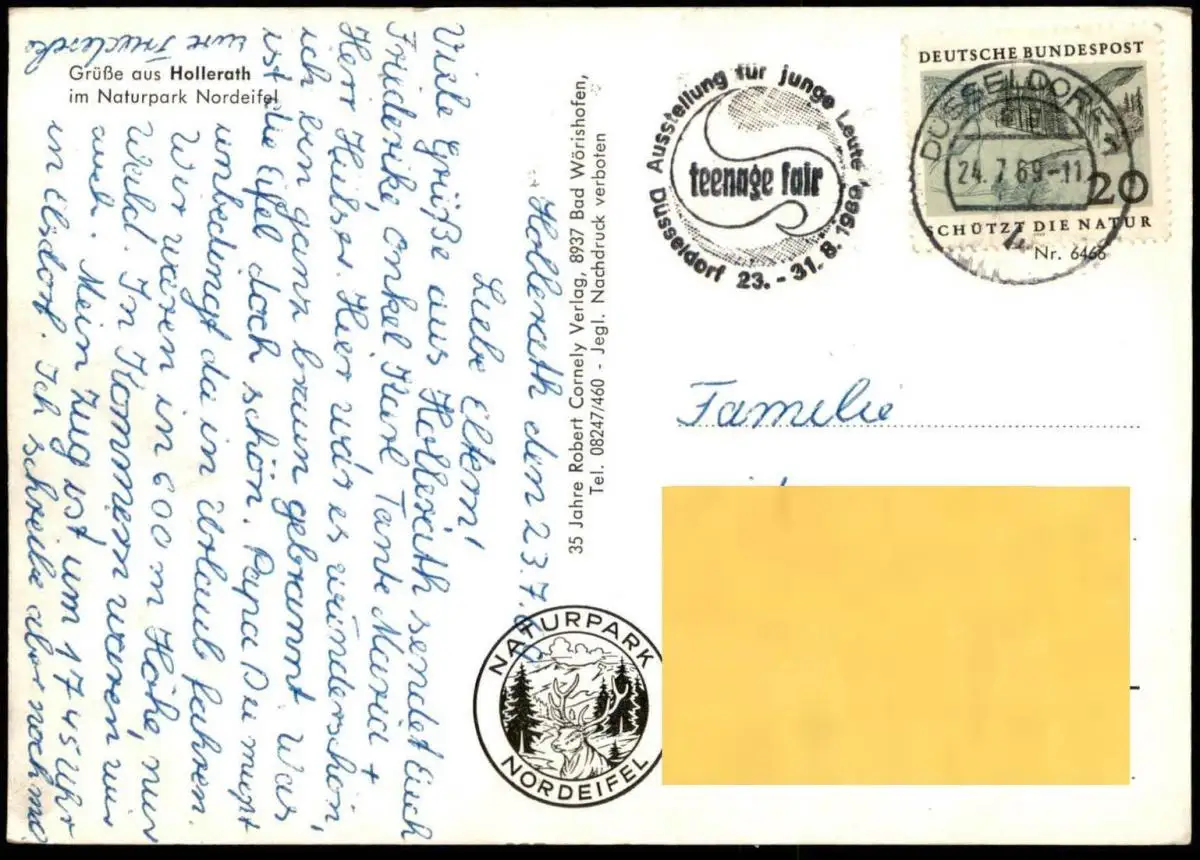 Grüße aus Hollerath
im Naturpark Nordeifel
Hollerath den 23.7.69
Liebe Eltern!
Viele Grüße aus Hollerath sendet Euch
Friederike, Onkel Karl Tante Maria +
Herr Hülss. Hier war es wunderschön,
ich bin ganz braun gebrannt. Was
ist die Eifel doch schön. Papa Du mußt
unbedingt da in Urlaub fahren.
Wir waren in 600 m Höhe, nur
Wald. In Kommern waren wir
auch. Mein Zug ist um 1745 Uhr
in Elsdorf. Ich schreibe aber noch mal
eure Friederike
35 Jahre Robert Cornely Verlag, 8937 Bad Wörishofen,
Tel. 08247/460 - Jegl. Nachdruck verboten
NATURPARK
NORDEIFEL
Ausstellung für junge Leute
teenage fair
Düsseldorf 23. - 31. 8. 1969
DEUTSCHE BUNDESPOST
20
SCHÜTZT DIE NATUR
DÜSSELDORF 1
24. 7. 69-11
Nr. 6466
Familie